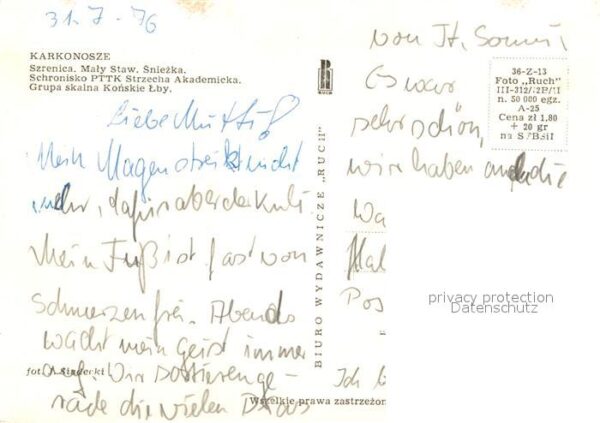 31.7.76
KARKONOSZE
Szrenica. Mały Staw. Śnieżka.
Schronisko PTTK Strzecha Akademicka.
Grupa skalna Końskie Łby.
Liebe Mutti!
Mein Magen streikt nicht
mehr, dafür aber der Kuli.
Mein Fuß ist fast von
Schmerzen frei. Abends
wacht mein Geist immer
auf. Wir sortieren ge-
rade die vielen Dias
fot. A. Siudecki
BIURO WYDAWNICZE „RUCH”
von H. 
Es war
sehr schön,
wir haben auch die
Wa
Hal
Pos
Ich
36-Z-13
Foto „Ruch”
n. 50 000 egz.
A-25
Cena zł 1,80
+ 20 gr
na SFBSiI
Wszelkie prawa zastrzeżon
privacy protection
Datenschutz